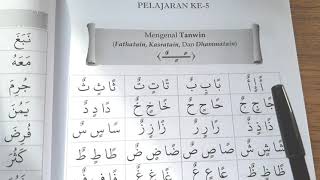 PELAJARAN KE-5
Mengenal Tanwin
(Fathatain, Kasratain, Dan Dhammatain)
بًا بٍ بٌ تًا تٍ تٌ ثًا ثٍ ثٌ
جًا جٍ جٌ حًا حٍ حٌ خًا خٍ خٌ دًا دٍ دٌ
ذًا ذٍ ذٌ رًا رٍ رٌ زًا زٍ زٌ سًا سٍ سٌ
شًا شٍ شٌ صًا صٍ صٌ ضًا ضٍ ضٌ طًا طٍ طٌ
ظًا ظٍ ظٌ
نَبَغَ
مَعَهُ
جُرِمَ
يَمُنَ
فَرَضَ
كَثُرَ